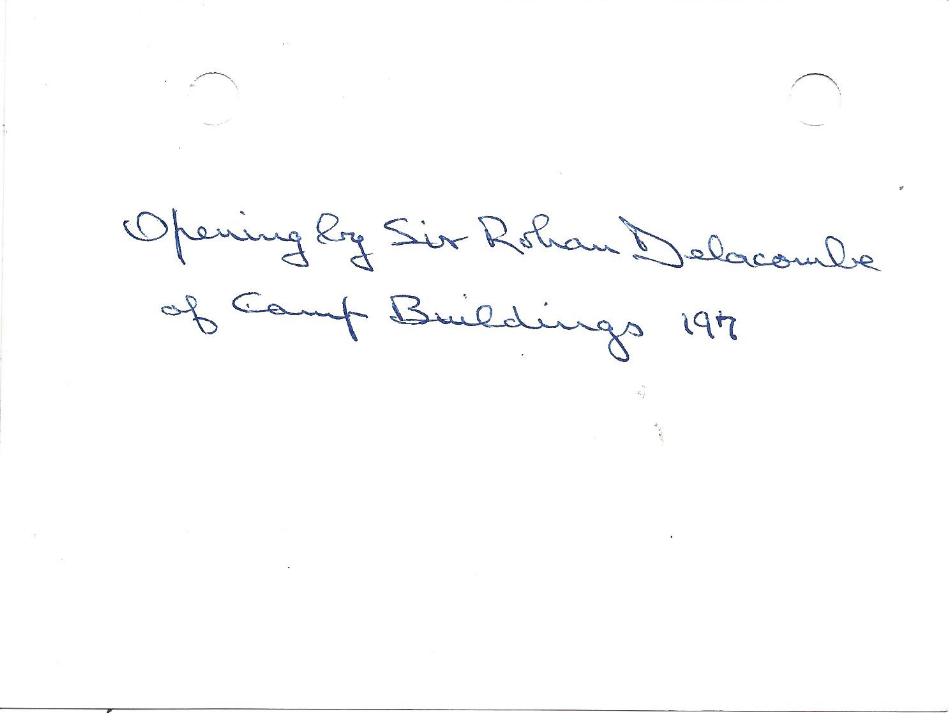 Opening by Sir Rohan Delacombe
of Camp Buildings 197